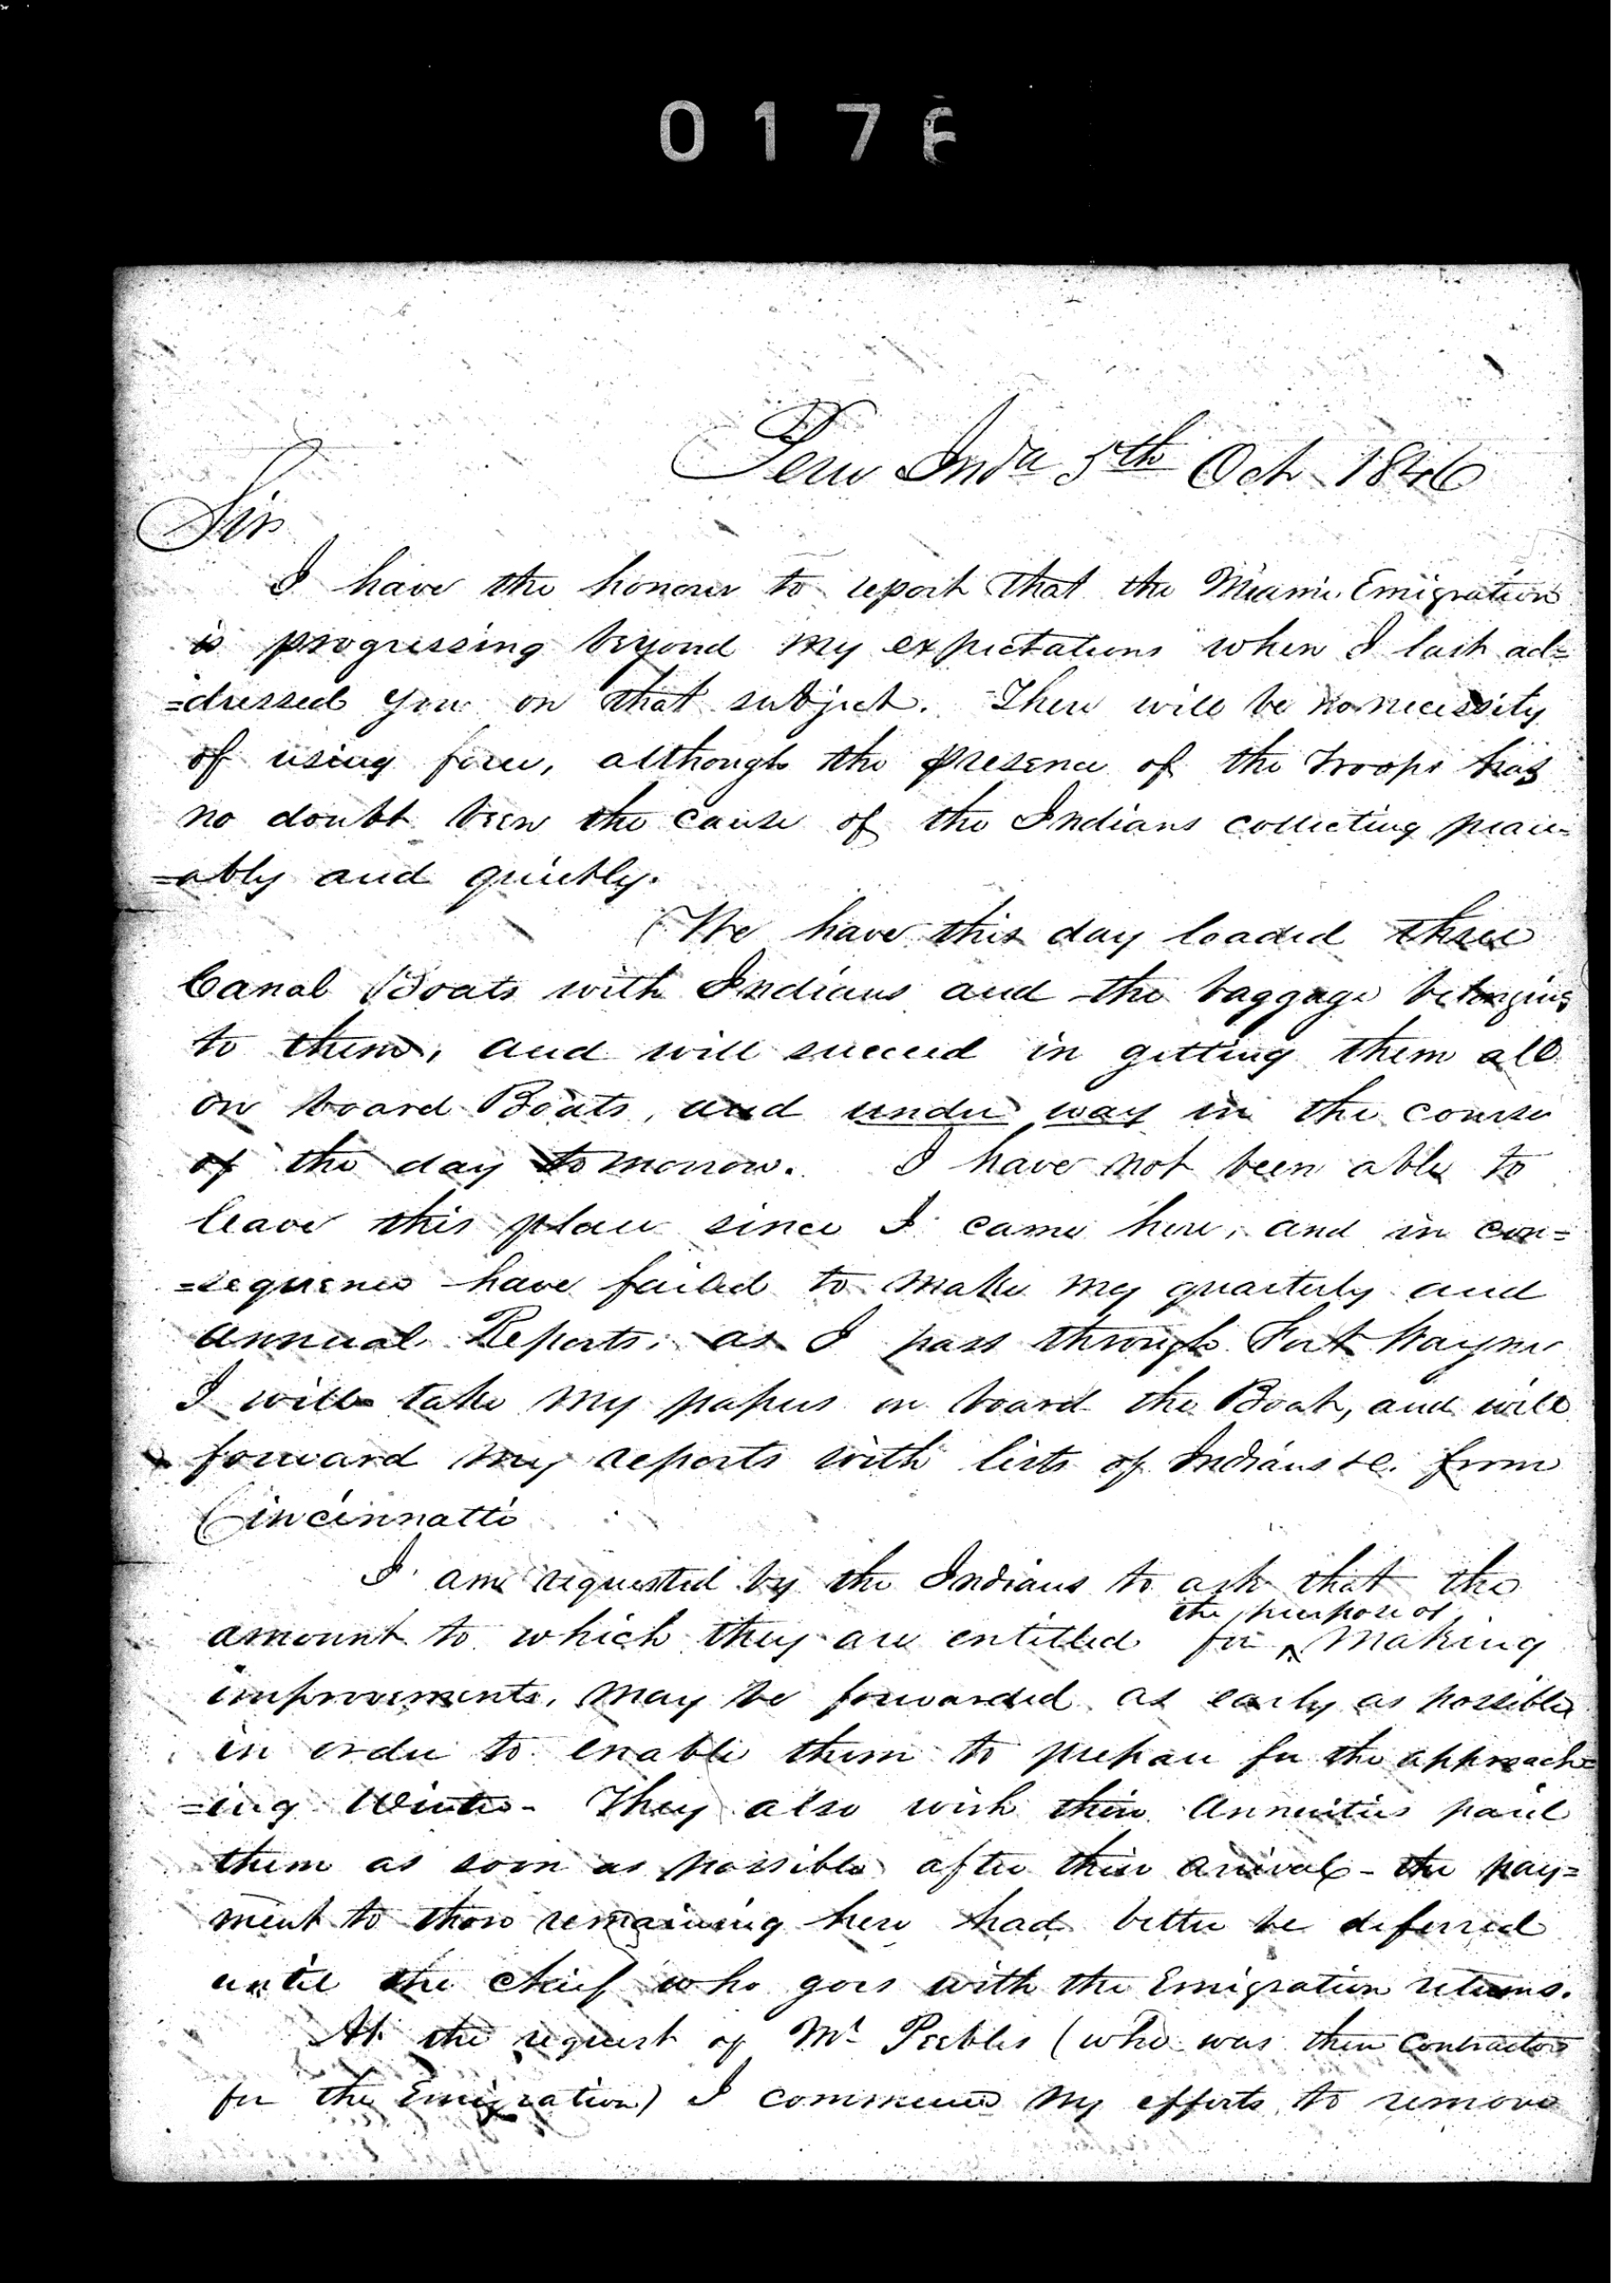 0176
Peru Inda 5th Oct 1846
Sir
I have the honour to report that the Miami Emigration
is progressing beyond my expectations when I last ad=
=dressed you on that subject. There will be no necessity
of using force, although the presence of the troops has
no doubt been the cause of the Indians collecting peace=
=ably and quietly.
We have this day loaded three
Canal Boats with Indians and the baggage belonging
to them, and will succeed in getting them all
on board Boats, and under way in the course
of the day tomorrow. I have not been able to
leave this place since I came here, and in con=
=sequence have failed to make my quarterly and
annual Reports, as I pass through Fort Wayne
I will take my papers on board the Boat, and will
forward my reports with lists of Indians &c. from
Cincinnatti
I am requested by the Indians to ask that the
amount to which they are entitled for ^ the purpose of making
improvements, may be forwarded as early as possible
in order to enable them to prepare for the approach=
=ing Winter - They also wish their annuities paid
them as soon as possible after their arrival - the pay=
ment to those remaining here had better be deferred
until the chief who goes with the Emigration returns.
At the request of Mr Peebles (who was then Contractor
for the Emigration) I commenced my efforts to remove